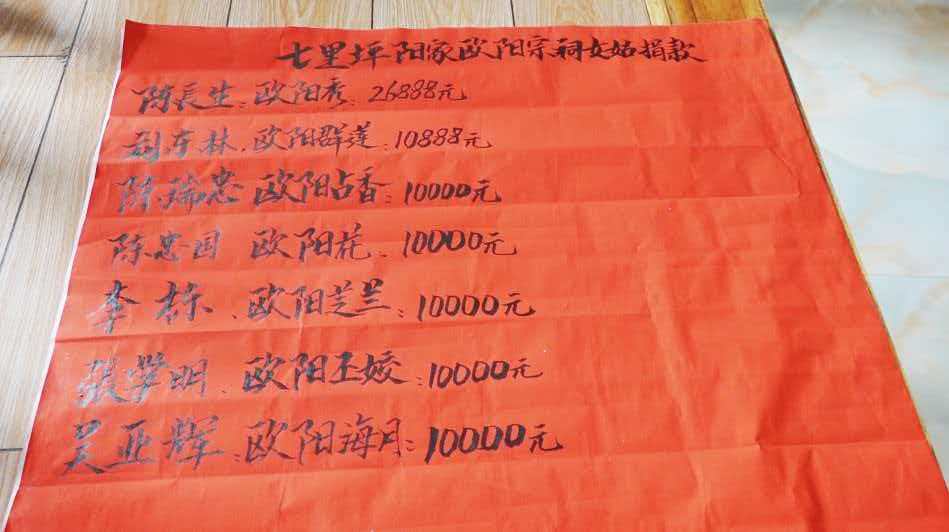 七里坪阳家欧阳宗祠女姑捐款
陈長生：欧阳秀：26888元
刘东林、欧阳群莲：10888元
陈瑞忠 欧阳占香：10000元
陈忠国 欧阳花、10000元
李栋、欧阳芝兰：10000元
張学明、欧阳玉姣：10000元
吴亚辉：欧阳海月：10000元